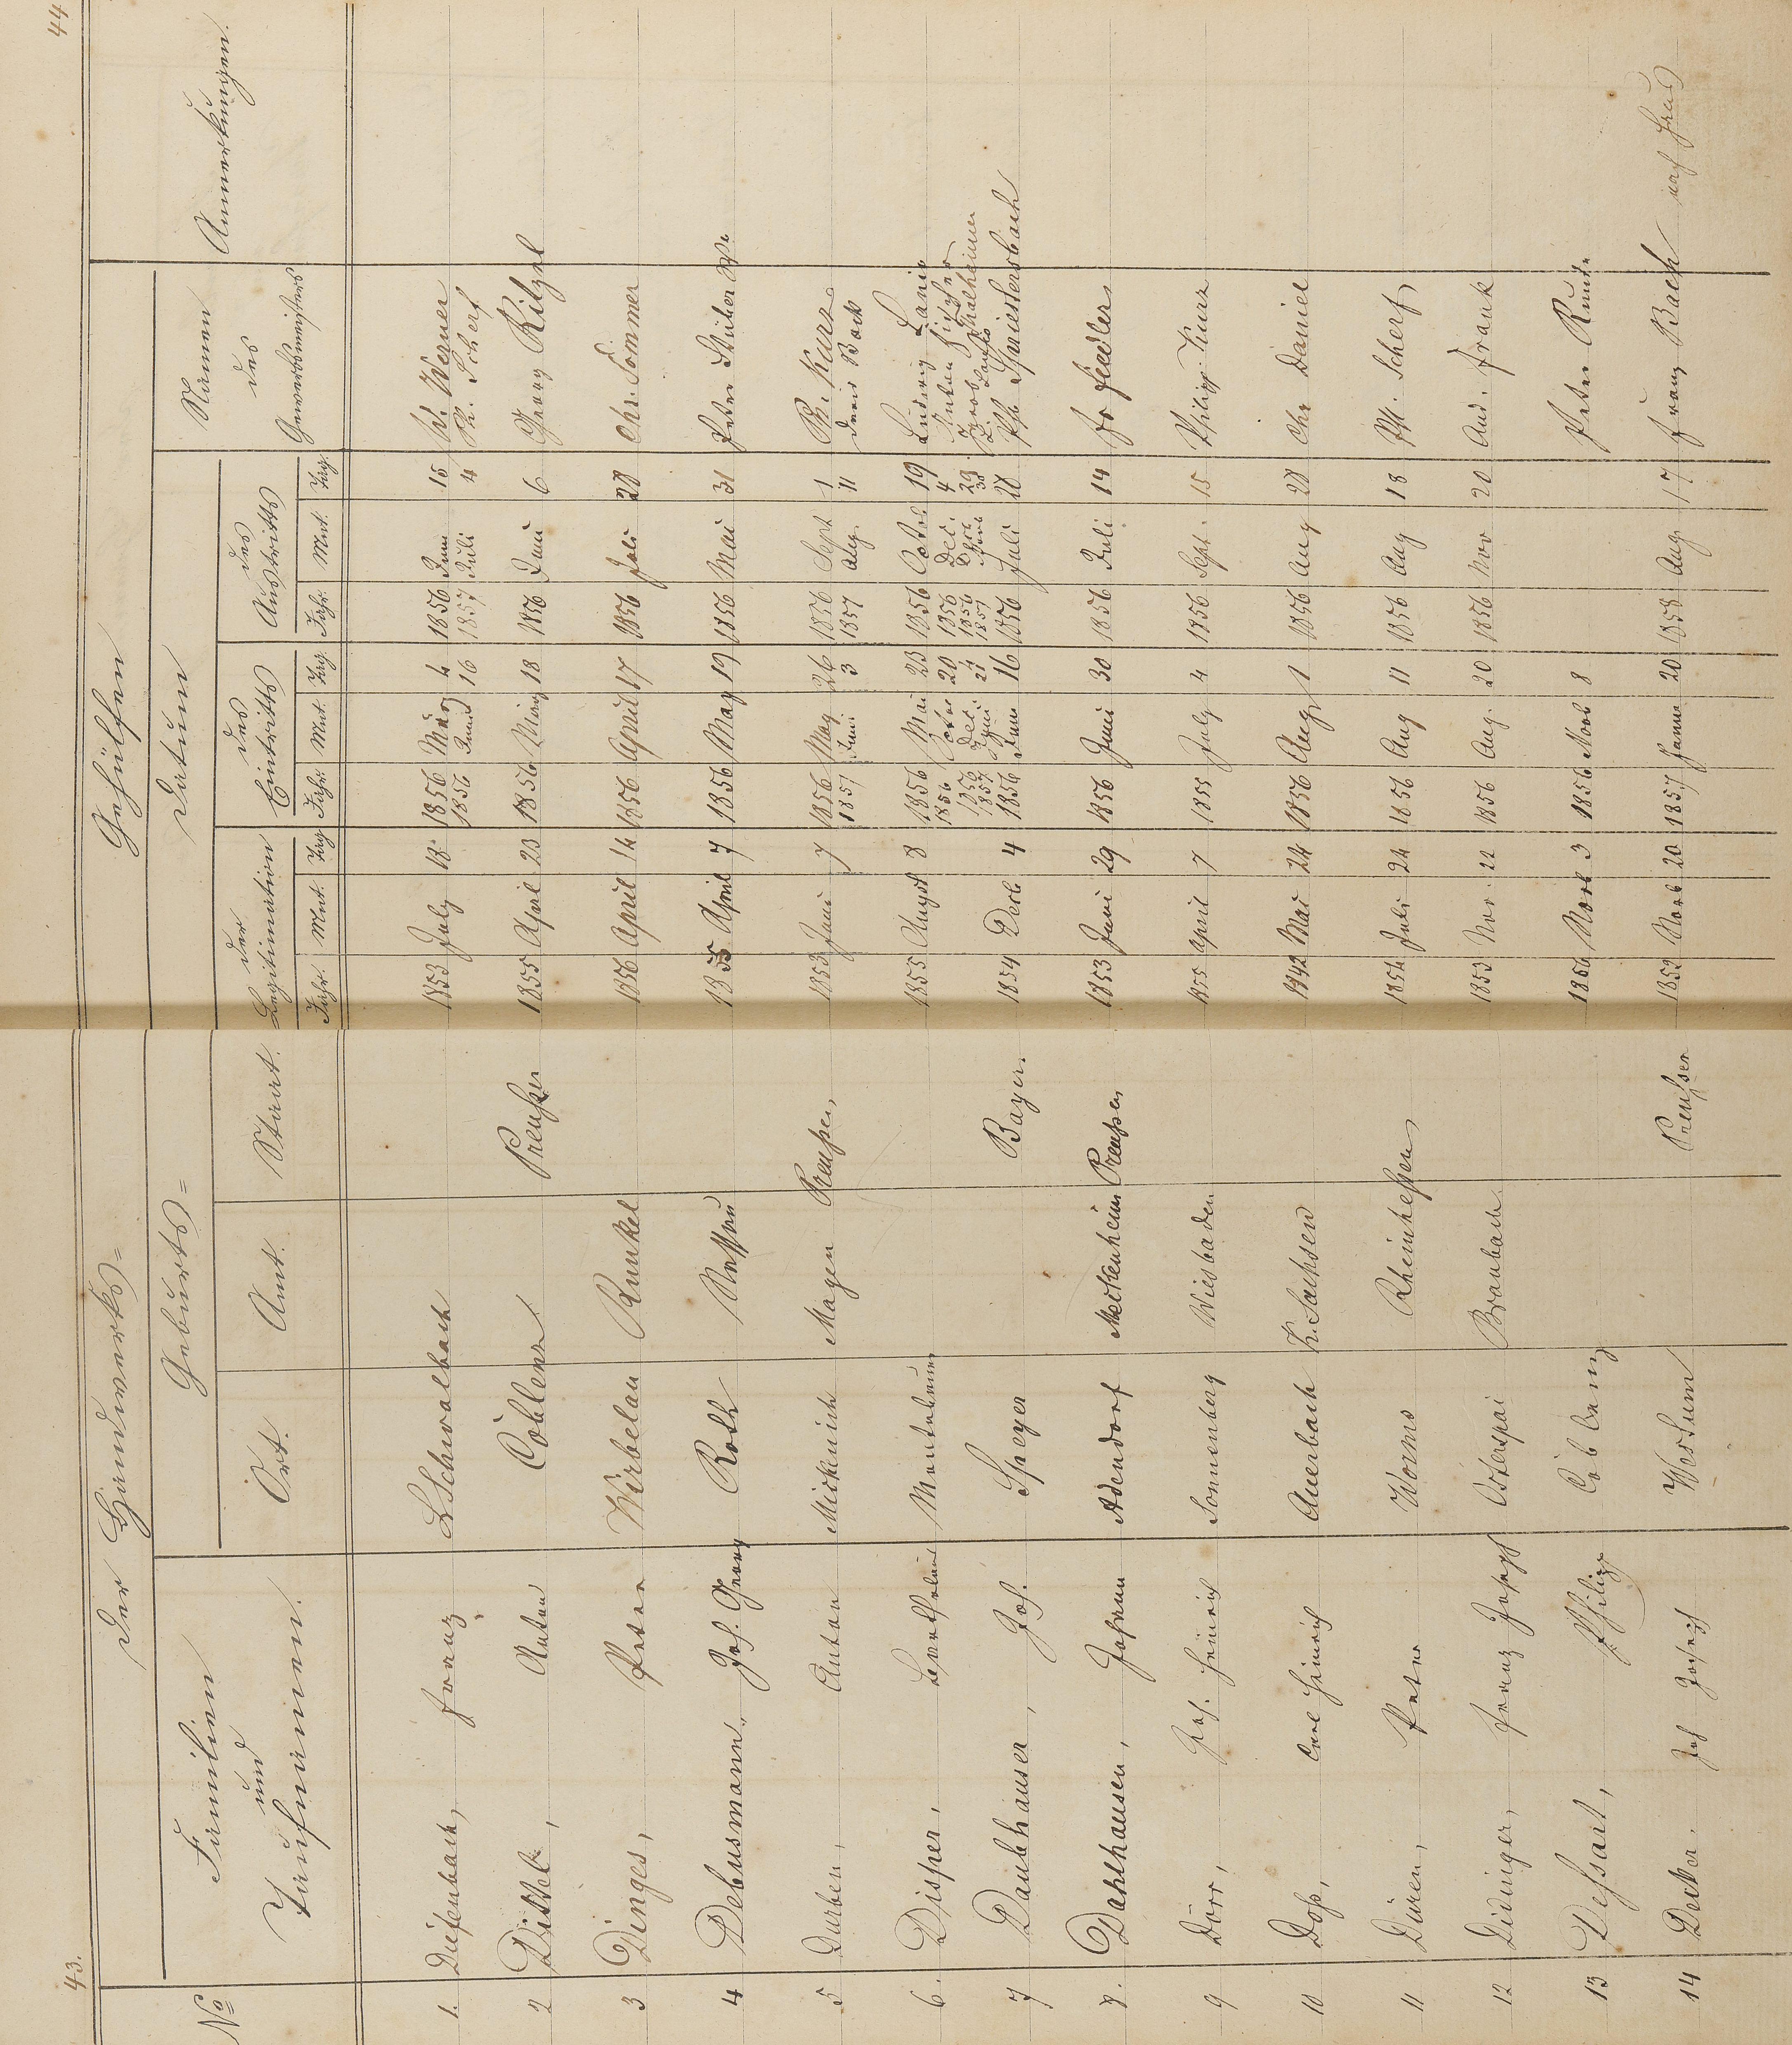 43.
44
Der Handwerks=
Gehülfen
No
Familien
und
Taufnamen.
Geburts=
Ort.
Amt.
Staat.
Datum
der
Legitimation
Jahr. Mnt. Tag
des
Eintritts
Jahr. Mnt. Tag.
des
Austritts
Jahr. Mnt. Tag.
Namen
des
Gewerbsmeisters
Anmerkungen.
1. Diefenbach, Franz L.Schwalbach 1853 July 18 1856 März 4 1856 Juni 15 Werner
1856 Juni 16 1857 Juli 4 Ph. Scherf
2 Dittel, Anton Coblenz Preußen 1855 April 23 1856 März 18 1856 Juni 6 Georg Ritzel
3 Dinges, Peter Wirbelau Runkel 1856 April 14 1856 April 17 1856 Juli 28 Chr. Sommer
4 Debusmann, Joh. Georg Roth Nassau 1855 April 7 1856 May 19 1856 Mai 31 Peter Stüber
5 Durben, Anton Mickenich Mayen Preußen, 1853 Juni 7 1856 May 26 1856 Sept 1 Ph. Kurz
1857 Juni 3 1857 Aug. 11 Bach
6. Disper, Montabaur 1855 August 8 1856 Mai 23 1856 Octob. 19 Ludwig Lanio
1856 Octor 20 1856 Dec. 4 Anton Fischer
1856 Dec. 4 1856 Dec. 29 Jacob Thalheimer
1857 Juni 21 1857 30
7 Daubhauser, Joh. Speyer Bayer. 1854 Decb 4 1856 Juni 16 1856 Juli 28 Ph. Spriestersbach
8. Dahlhausen, Johann Adendorf Meckenheim Preußen 1853 Juni 29 1856 Juni 30 1856 Juli 14 Fr Fiedler
9 Dörr, Joh. Heinrich Sonnenberg Wiesbaden 1855 April 7 1855 July 4 1856 Sept. 15 Philipp Kurz
10 Doß, Carl Heinrich Auerbach K. Sachsen 1842 Mai 24 1856 Aug 1 1856 Aug 28 Chr Daniel
11 Düren, Peter Worms Rheinheßen 1854 Juli 24 1856 Aug 11 1856 Aug 18 Ph. Scherf
12 Didinger, Franz Joseph Osterspai Braubach 1853 Nov. 22 1856 Aug. 20 1856 Nov 20 And. Frank
13 Deßart, Philipp Coblenz 1856 Novb 3 1856 Novb 8 Peter
14 Decker. Joh Joseph Westum Preußen 1852 Novb 20 1857 Januar 20 1858 Aug 17 Franz Bach nach Haus